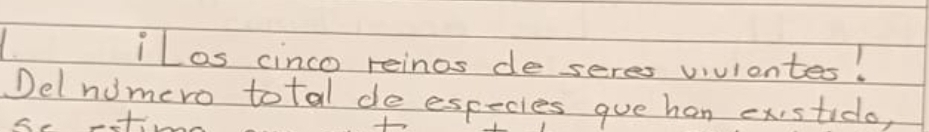 ¡Los cinco reinos de seres vivientes!
Del número total de especies que han existido,
se estima